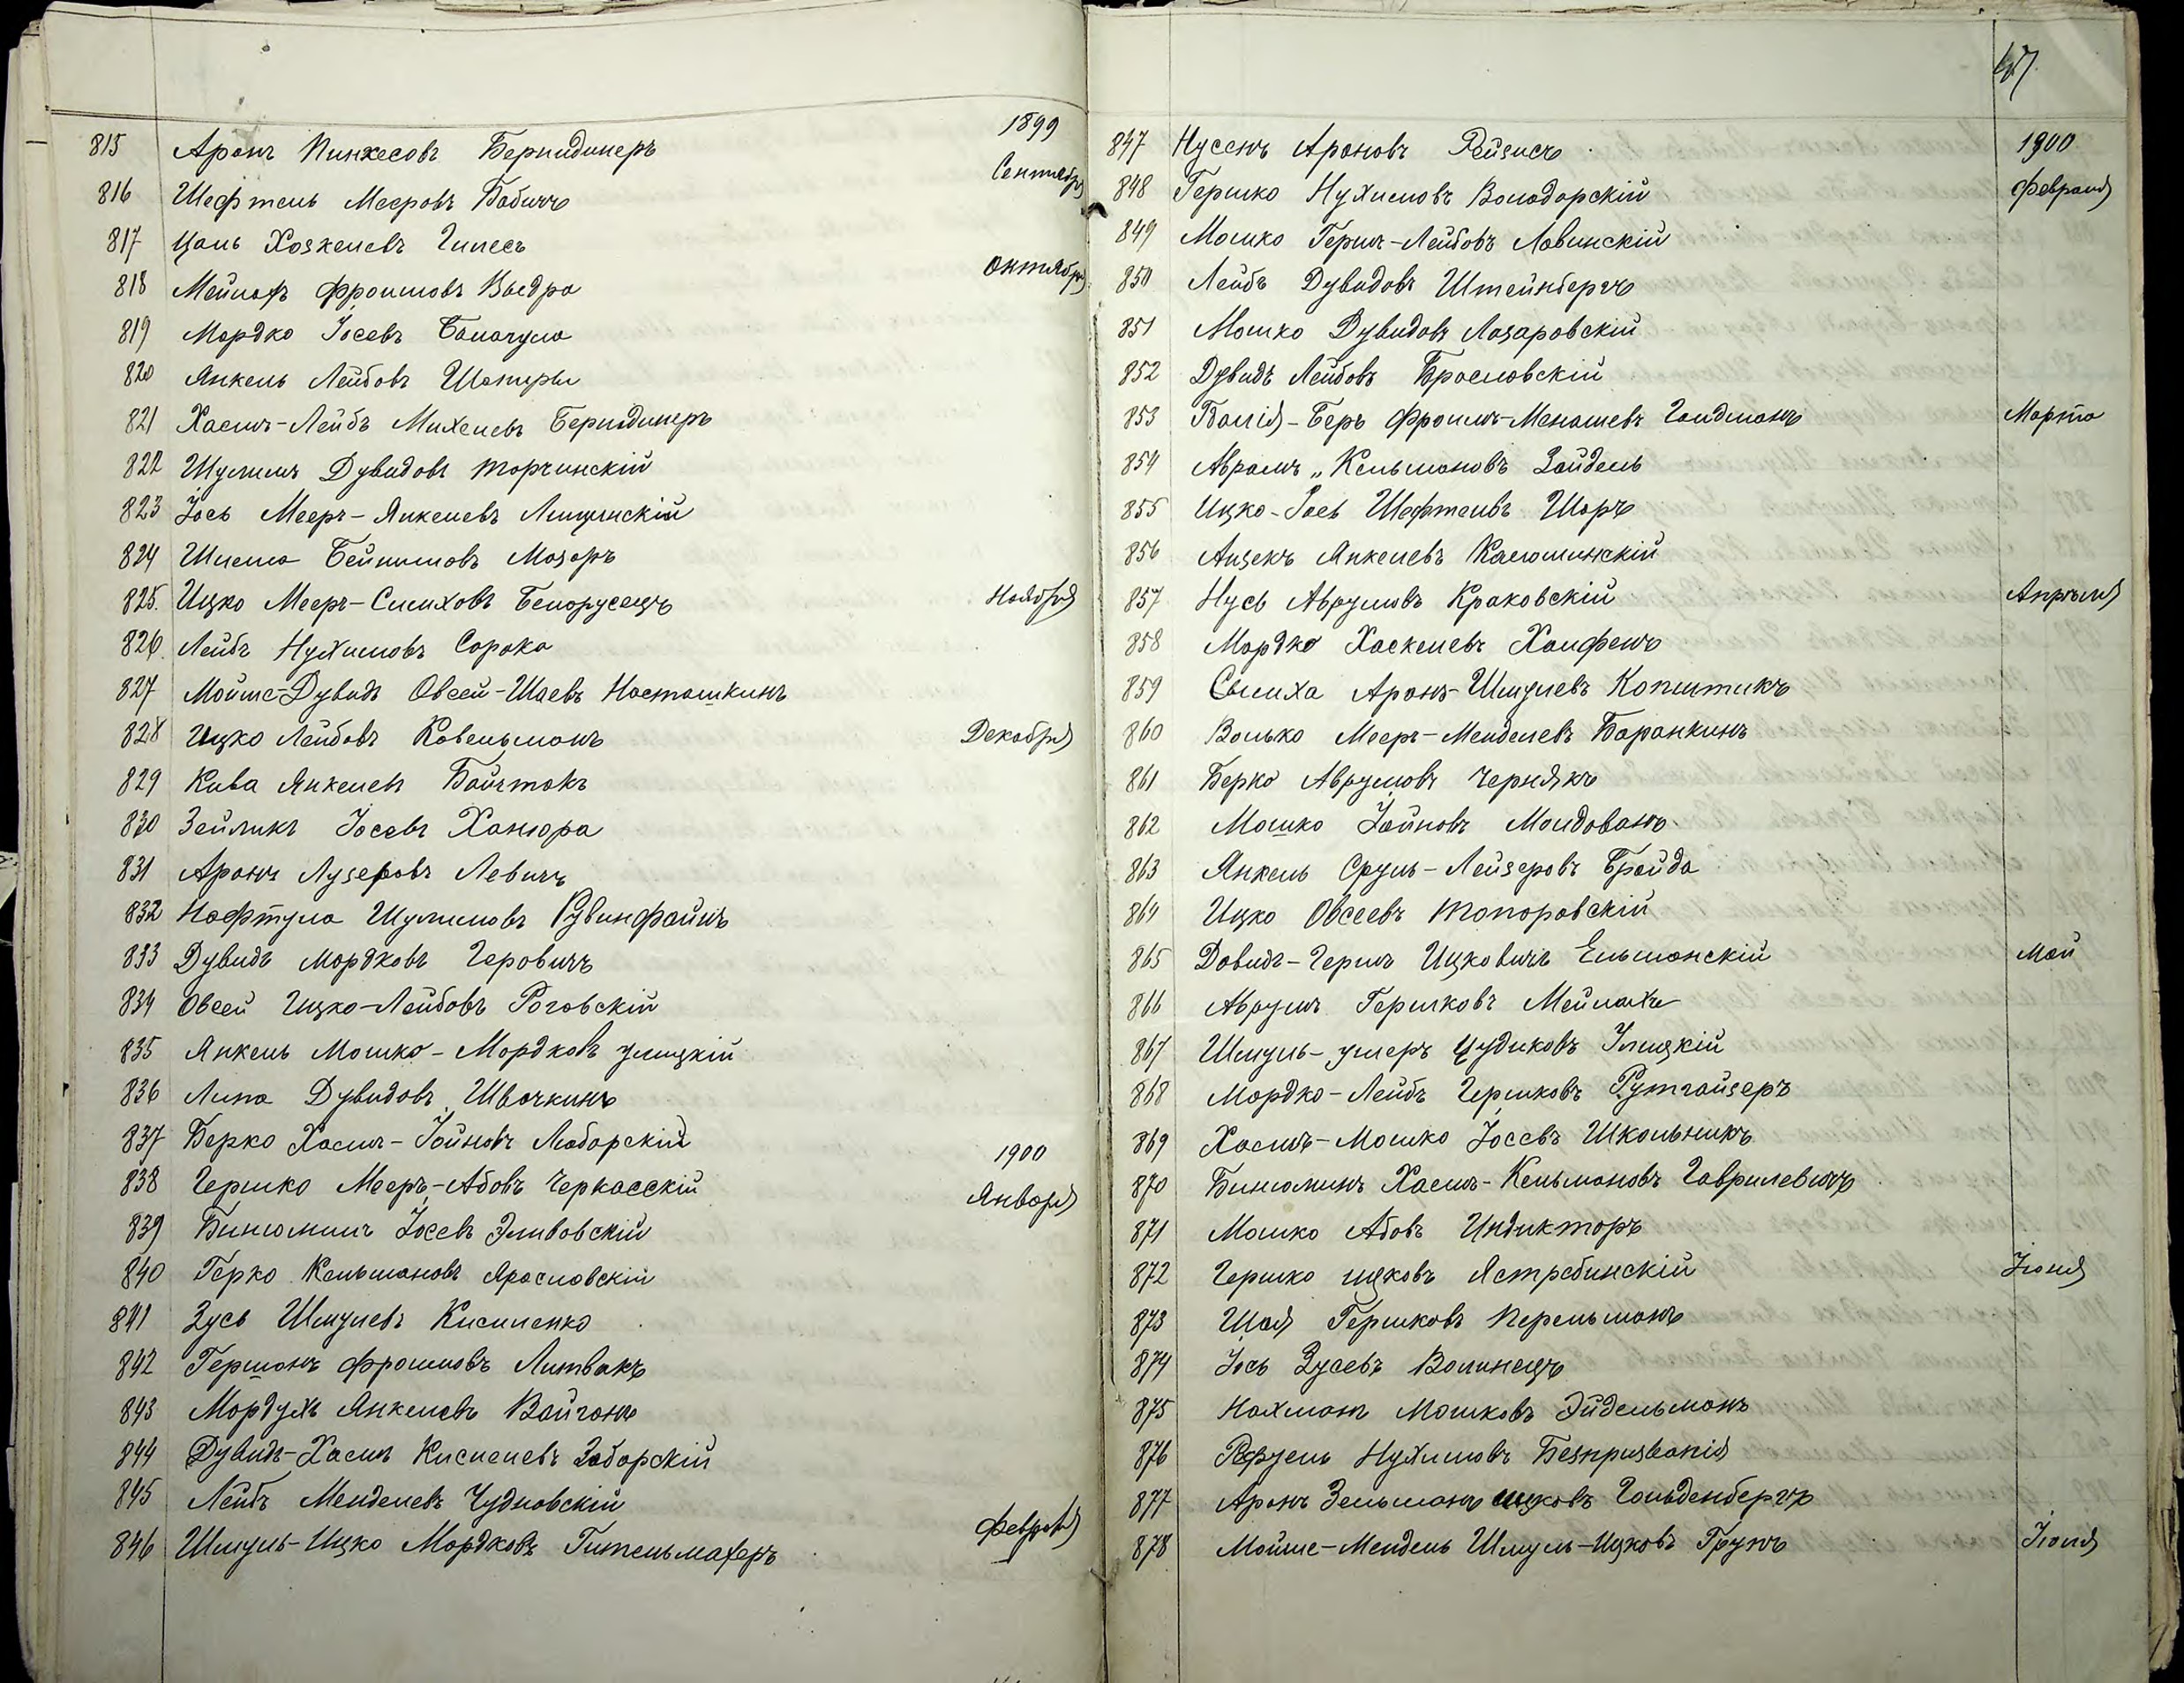 1899
815 Аронъ Пинхесовъ Бернидинеръ Сентября
816 Шефтель Мееровъ Бабичъ
817 Цаль Хозкелевъ Гипесъ
818 Мейлафъ Фроимовъ Выдра Октября
819 Мордко Іосевъ
820 Янкель Лейбовъ Шапиры
821 Хаимъ-Лейбъ Михелевъ Бернидинеръ
822 Шулимъ Дувидовъ Торчинскій
823 Іось Мееръ-Янкелевъ Лищинскій
824 Шлема Бейнишовъ Мазоръ
825. Ицко Мееръ-Симховъ Белорусецъ Ноября
826. Лейбъ Нухимовъ Сорока
827 Мойше-Дувидъ Овсей-Шаевъ Насташкинъ
828 Ицко Лейбовъ Кавельманъ Декабря
829 Кива Янкелевъ Байштокъ
830 Зейликъ Іосевъ Ханюра
831 Аронъ Лузеровъ Левичъ
832 Нафтула Шулимовъ Рубинфайнъ
833 Дувидъ Мордковъ Геровичъ
834 Овсей Ицко-Лейбовъ Роговскій
835 Янкель Мошко-Мордковъ Улицкій
836 Липа Дувидовъ Швачкинъ
837 Берко Хаимъ-Іойновъ Любарскій
1900
838 Гершко Мееръ-Абовъ Черкасскій Января
839 Биньюминъ Іосевъ
840 Герко Кельмановъ Ярославскій
841 Зусь Шмулевъ Кисиленко
842 Гершонъ Фроимовъ Литвакъ
843 Мордухъ Янкелевъ Вайганъ
844 Дувидъ-Хаимъ Кисилевъ Заборскій
845 Лейбъ Менделевъ Чудновскій
846 Шмуль-Ицко Мордковъ Гительмахеръ Февраля
847 Нусенъ Ароновъ Рейзисъ 1900
848 Гершко Нухимовъ Володарскій Февраля
849 Мошко Гершъ-Лейбовъ Лавинскій
850 Лейбъ Дувидовъ Штейнбергъ
851 Мошко Дувидовъ Лазаровскій
852 Дувидъ Лейбовъ Браславскій
853 Беръ Фроимъ-Менашевъ Галдманъ Марта
854 Абрамъ „ Кельмановъ Зайдель
855 Ицко-Іось Шефтелевъ Шоръ
856 Айзекъ Янкелевъ Калюжинскій
857 Нусь Аврумовъ Краковскій Апрѣля
858 Мордко Хаскелевъ Халфенъ
859 Симха Аронъ-Шмулевъ Копштикъ
860 Волько Мееръ-Менделевъ Баранкинъ
861 Берко Аврумовъ Чернякъ
862 Мошко Іойновъ Молдованъ
863 Янкель Сруль-Лейзеровъ Бройда
864 Ицко Овсеевъ Топоровскій
865 Давидъ-Гершъ Ицковичъ Ельманскій Май
866 Аврумъ Гершковъ Мейлахъ
867 Шмуль-Ушеръ Цудиковъ Улицкій
868 Мордко-Лейбъ Гершковъ Рутгайзеръ
869 Хаимъ-Мошко Іосевъ Школьникъ
870 Биньюминъ Хаимъ-Кельмановъ Гаврилевичъ
871 Мошко Абовъ Индикторъ
872 Гершко Ицковъ Ястребинскій Іюня
873 Шая Гершковъ Перельманъ
874 Іось Зусевъ Волинецъ
875 Нахманъ Мошковъ Эйдельманъ
876 Рефуель Нухимовъ Безпризванія
877 Аронъ Зельманъ Ицковъ Гольденбергъ
878 Мойше-Мендель Шмуль-Ицковъ Грунъ Іюня